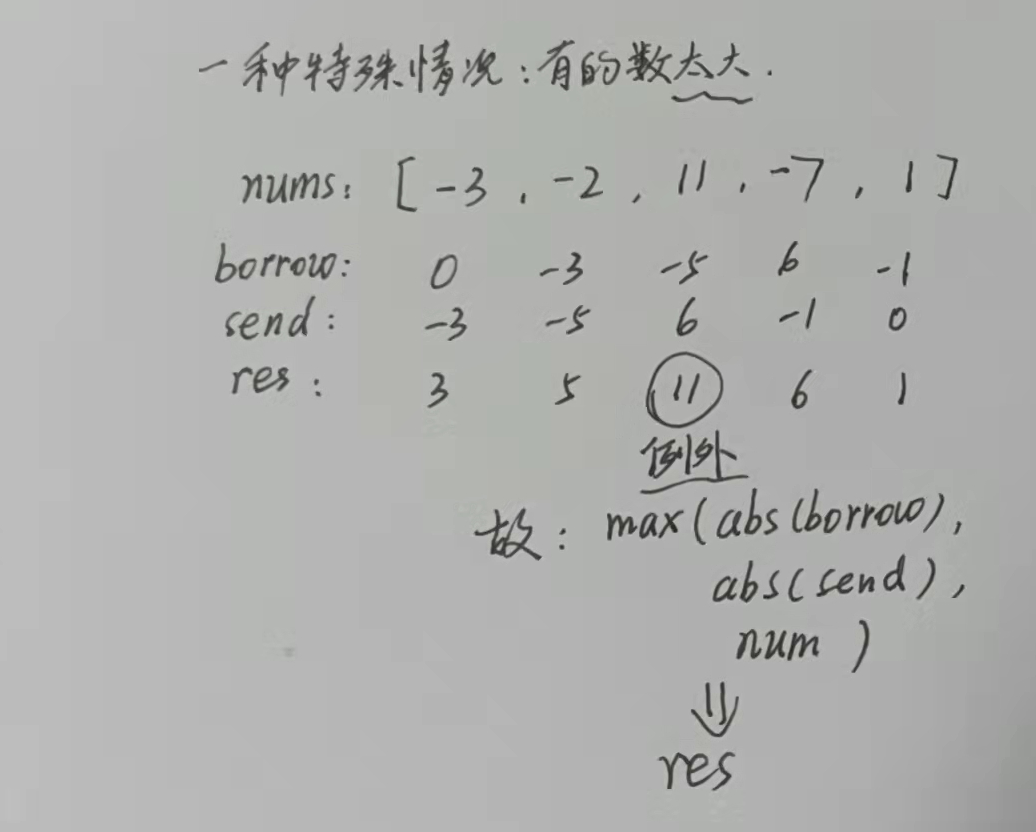 一种特殊情况：有的数太大.
nums: [ -3 , -2 , 11 , -7 , 1 ]
borrow: 0 -3 -5 6 -1
send: -3 -5 6 -1 0
res: 3 5 11 6 1
例外
故: max(abs(borrow),
abs(send),
num)
⇓
res